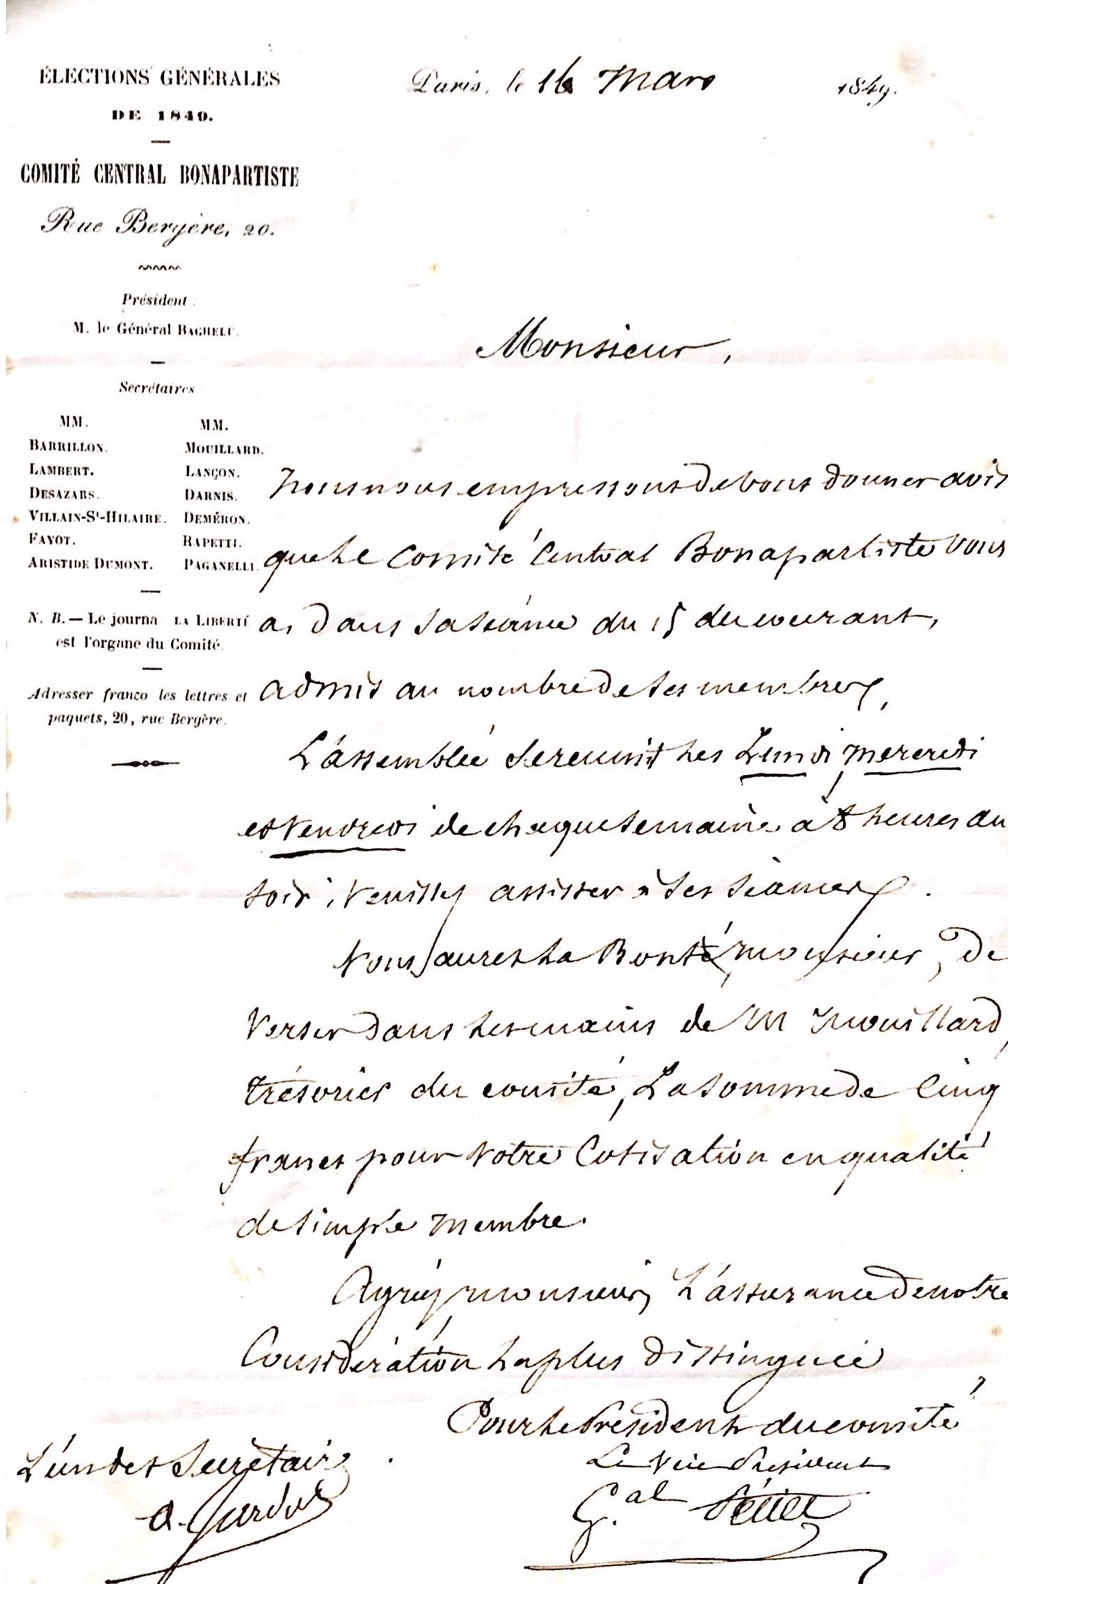 ÉLECTIONS GÉNÉRALES
DE 1849.
COMITÉ CENTRAL BONAPARTISTE
Rue Bergère, 20.
Président :
M. le Général BACHELU.
Secrétaires
MM.
BARRILLON.
LAMBERT.
DESAZARS.
VILLAIN-St-HILAIRE.
FAYOT.
ARISTIDE DUMONT.
MM.
MOUILLARD.
LANÇON.
DARNIS.
DEMÉRON.
RAPETTI.
PAGANELLI.
N. B. — Le journa LA LIBERTÉ
est l'organe du Comité.
Adresser franco les lettres et
paquets, 20, rue Bergère.
Paris, le 16 Mars 1849.
Monsieur,
Nous nous empressons de vous donner avis
que le Comité Central Bonapartiste vous
a, dans sa séance du 15 du courant,
admis au nombre de ses membres,
L'assemblée se reunit les Lundi, mercredi
et vendredi de chaque semaine à 8 heures du
soir ; veuillez assister à ses séances.
Vous aurez la Bonté, monsieur, de
verser dans les mains de M Mouillard,
trésorier du comité, La somme de Cinq
francs pour votre Cotisation en qualité
de simple membre.
Agréez, monsieur, L'assurance de notre
Considération la plus distinguée
Pour le Président du comité
Le Vice Président
Gal
L'un des Secrétaires
A.